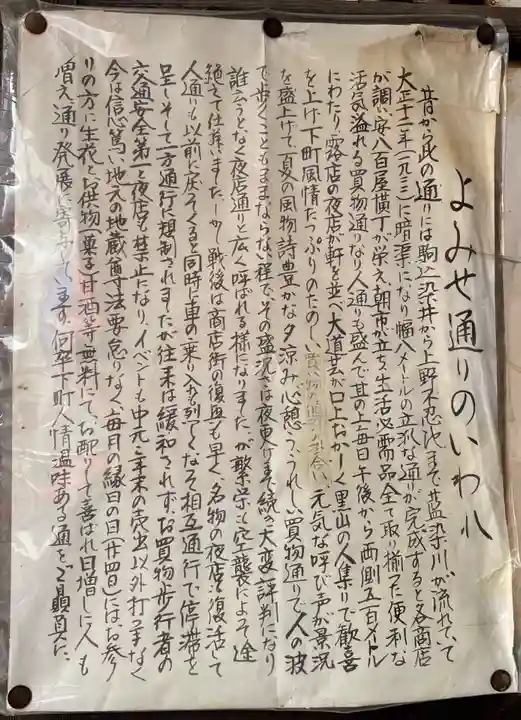 よみせ通りのいわれ
昔から此の通りには駒込染井から上野不忍池まで藍染川が流れていて
大正十二年(一九二三)に暗渠になり幅八メートルの立派な通りが完成すると各商店
が調い安八百屋横丁が栄え朝市が立ち生活必需品全て取り揃った便利な
活気溢れる買物通りなり人通りも盛んで其の上毎日午後から両側五百メートル
にわたり露店の夜店が軒を並べ大道芸が口上おかしく黒山の人集りで歓喜
を上げ下町風情たっぷりのたのしい買物の値引の掛合い元気な呼び声が景況
を盛上げて夏の風物詩豊かな夕涼み心憩ううれしい買物通りで人の波
で歩くこともままならない程でその盛況さは夜更けまで続き大変評判になり
誰云うとなく夜店通りと広く呼ばれる様になりました。が繁栄も空襲によって途
絶えて仕舞いました一カ戦後は商店街の復興も早く名物の夜店も復活して
人通りも以前に戻ってくると同時に車の乗り入れも烈しくなって相互通行で停滞を
呈しそして一方通行に規制されましたが往来は緩和されず、お買物歩行者の
交通安全第一と夜店も禁止になり、イベントも中元、年末の売出以外打つ手なく
今は信心篤い地元の地蔵尊寺法要怠りなく毎月の縁日の日(廿四日)にはお参
りの方に生花とお供物(菓子)甘酒等無料にてお配りして喜ばれ日増しに人も
増え通り発展に寄与しています。何卒下町人情温味ある通をご贔負に、